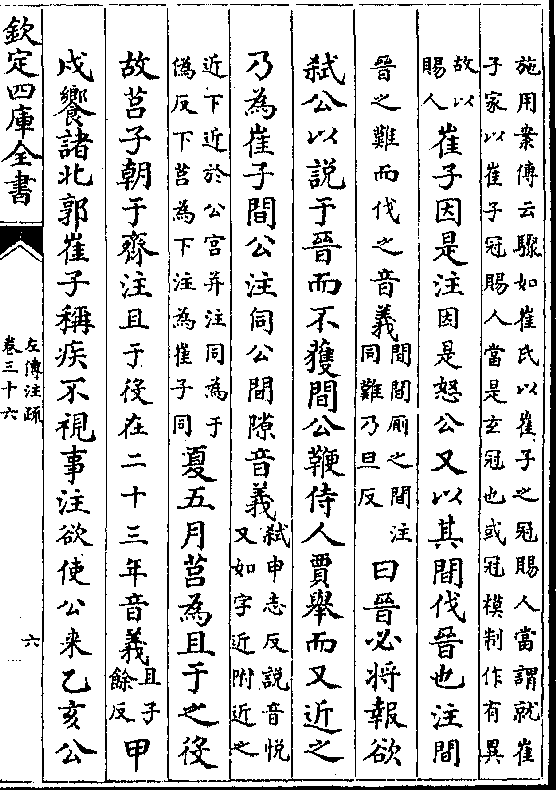 施用案傳云驟如崔氏以崔子之冠賜人當謂就崔
子家以崔子冠賜人當是玄冠也或冠模制作有異
故以
賜人
崔子因是注因是怒公又以其間伐晉也注間
晉之難而伐之音義
間間厠之間注
同難乃旦反
曰晉必將報欲
弑公以説于晉而不獲間公鞭侍人賈舉而又近之
乃為崔子間公注伺公間隙音義
弑申志反説音悦
又如字近附近之
近下近於公宮并注同為于
偽反下莒為下注為崔子同
夏五月莒為且于之役
故莒子朝于齊注且于役在二十三年音義
且子
餘反
甲
戌饗諸北郭崔子稱疾不視事注欲使公来乙亥公
欽定四庫全書
左傳注疏
卷三十六
六